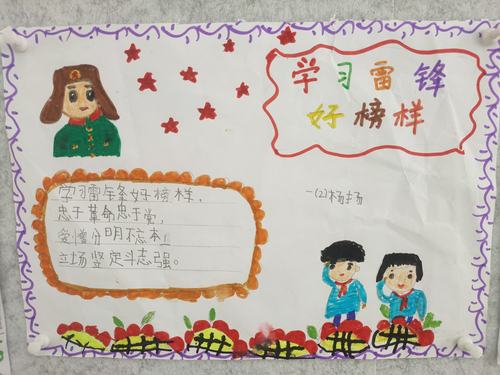 学习雷锋
好榜样
学习雷锋好榜样，
忠于革命忠于党，
爱憎分明不忘本！
立场坚定斗志强。
一(2)杨扬